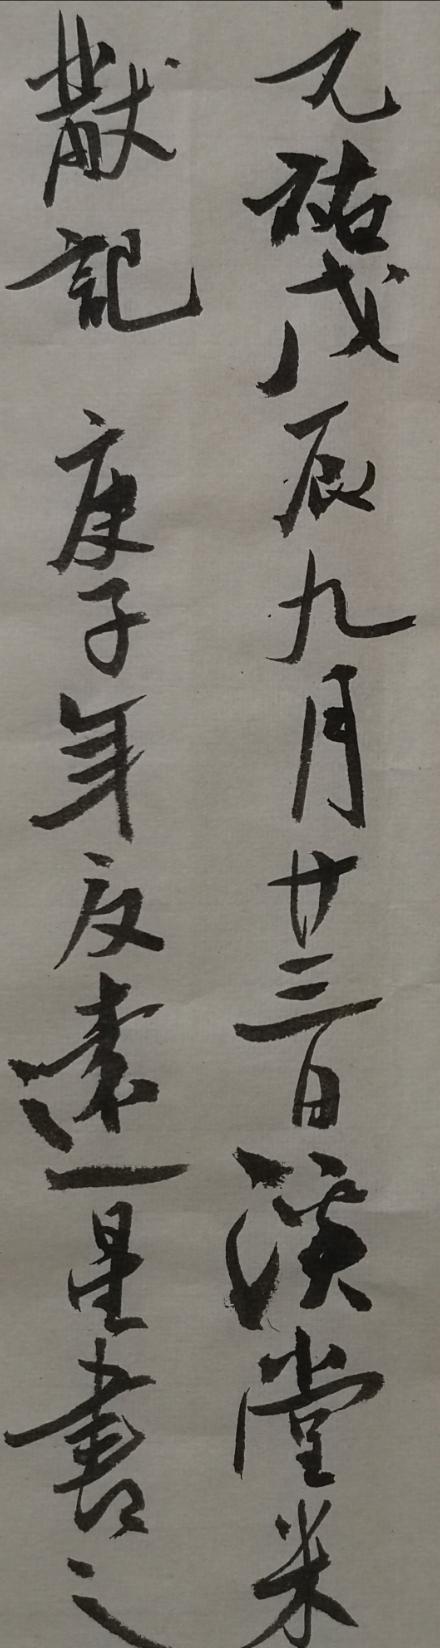 元祐戊辰九月廿三日溪堂米
黻記 庚子年夜遠星書之